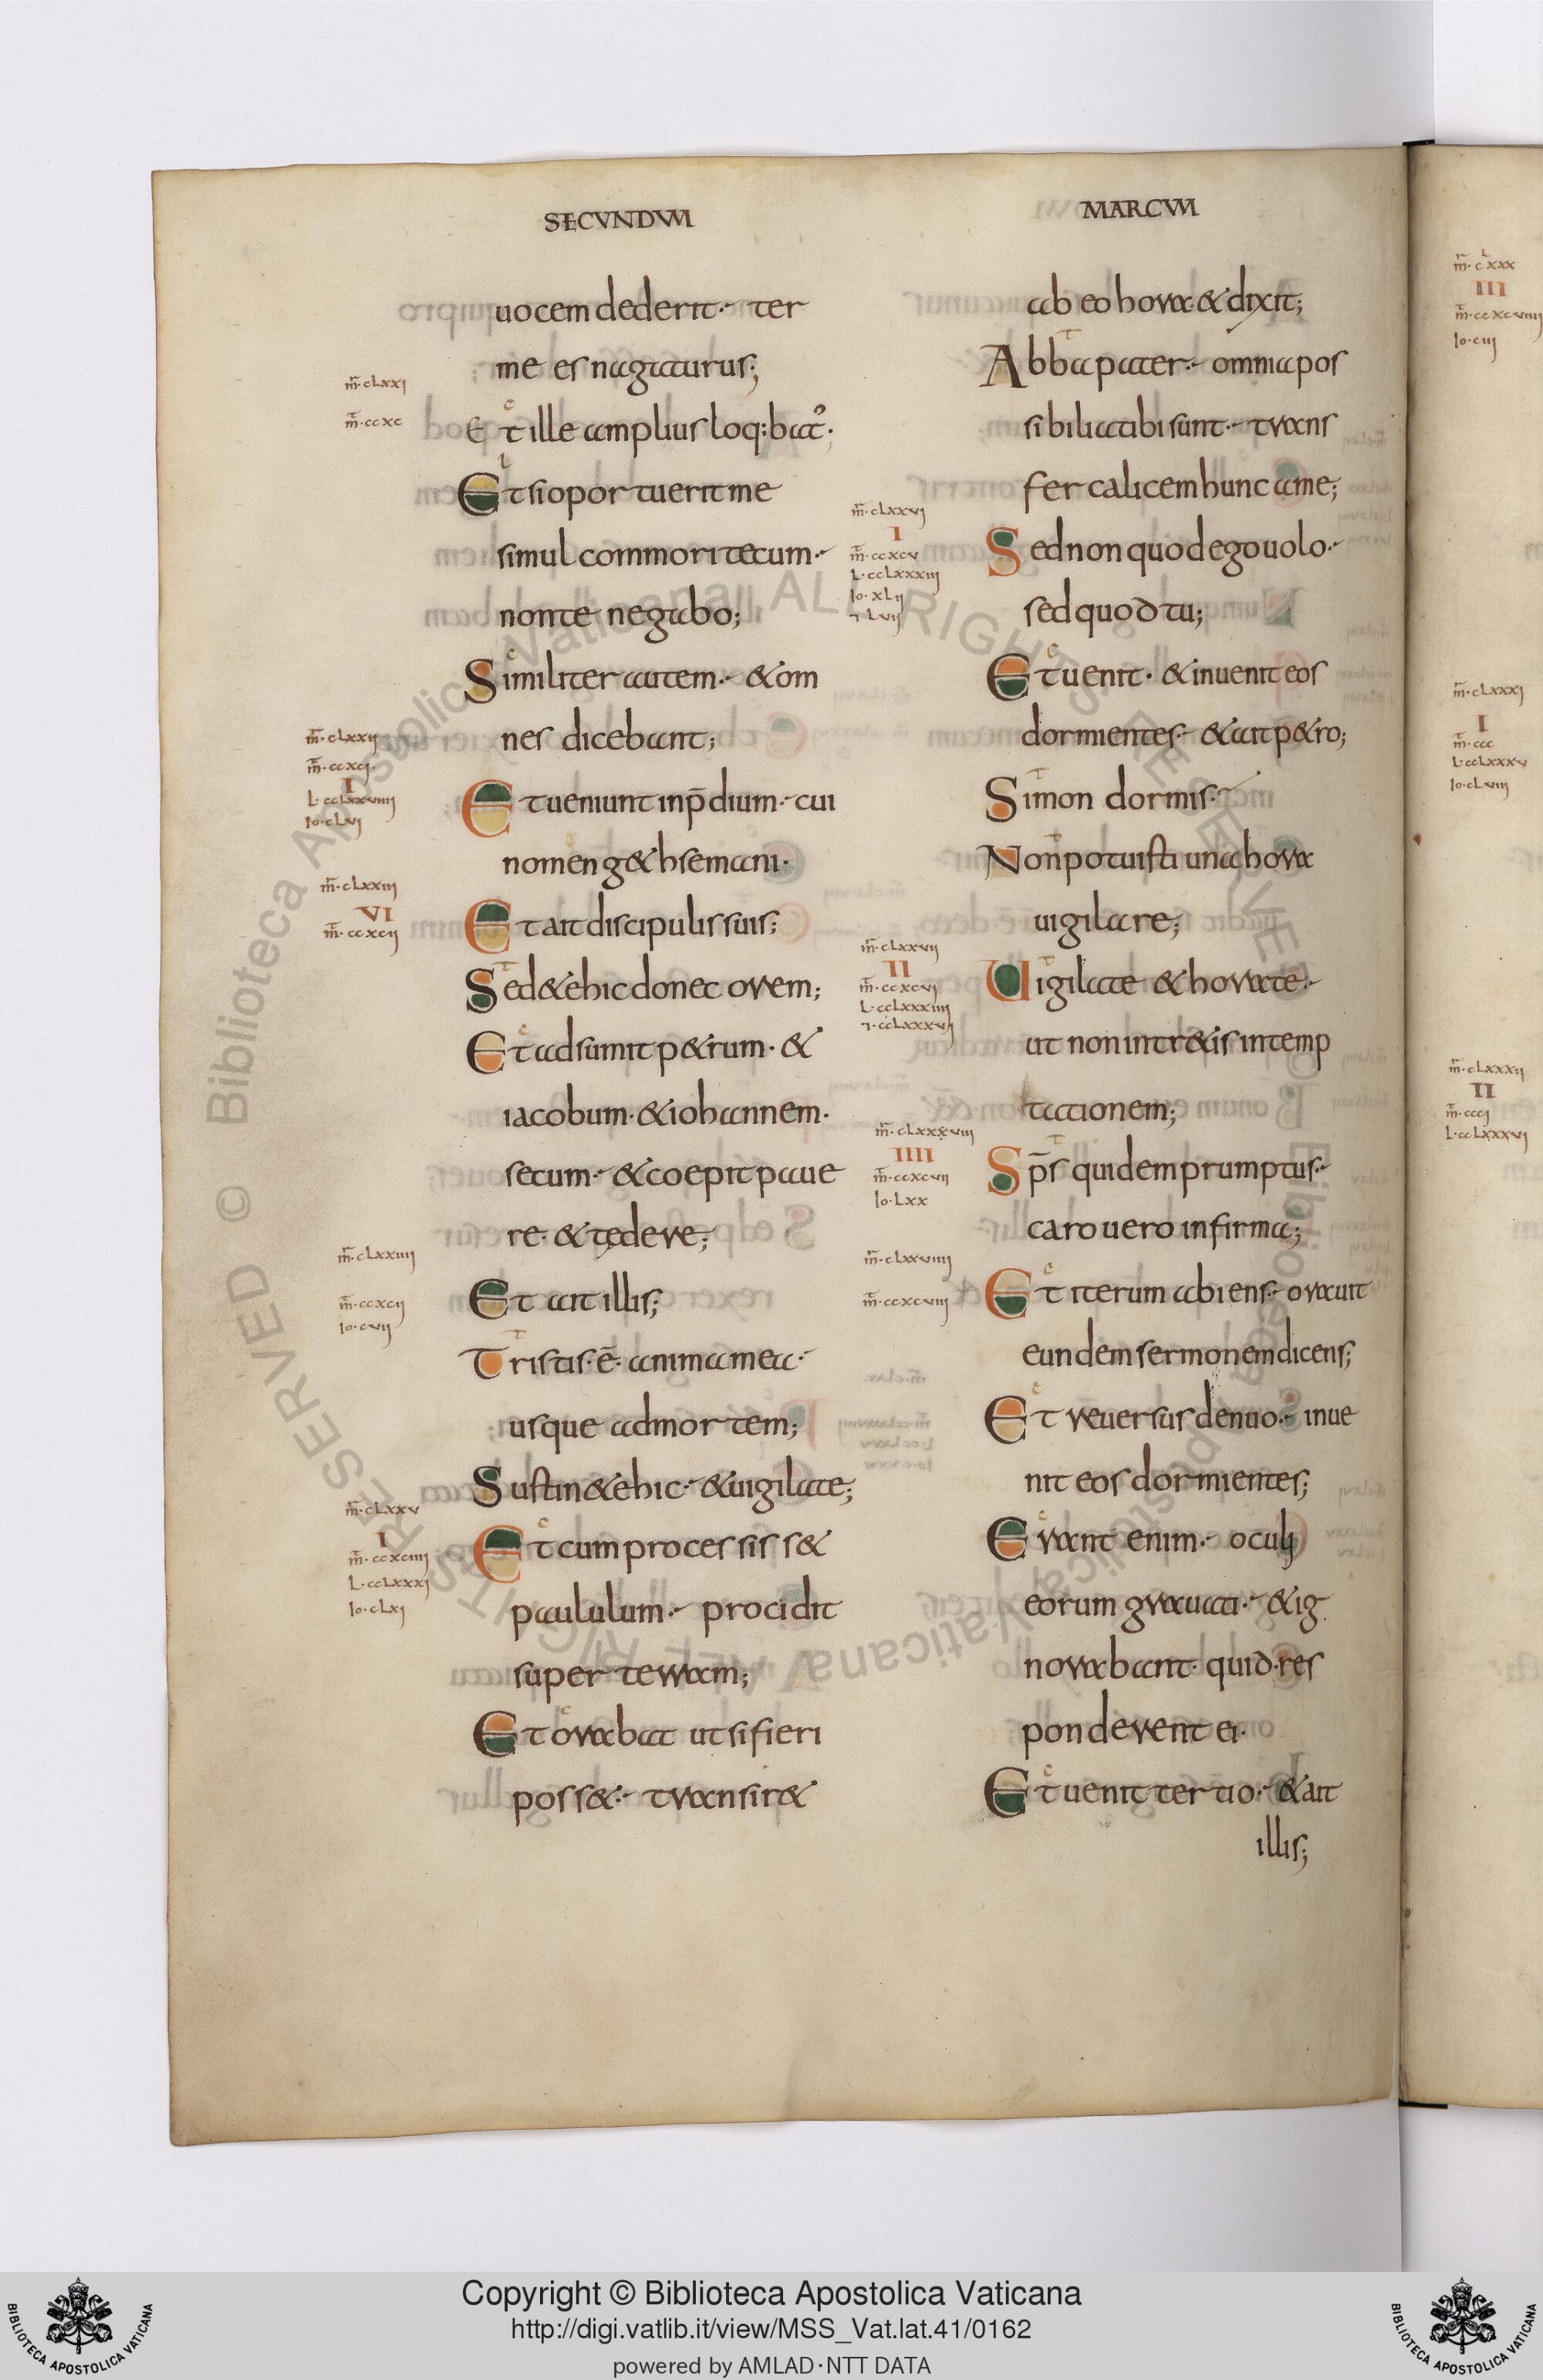 SECVNDVM
uocem dederit· ter
me es nagaturus;
Et ille amplius loq:bat᾽·
Et si oportuerit me
simul commori tecum·
non te negabo;
Similiter autem· & om
nes dicebant;
Et ueniunt in p̄dium· cui
nomen g&hsemani·
Et ait discipulis suis;
Sed&e hic donec orem;
Et adsumit p&rum· &
iacobum· & iohannem·
secum· & coepit paue
re· & tędere;
Et ait illis;
Tristis· ē· anima mea·
usque ad mortem;
Sustin&e hic· & uigilate;
Et cum processiss&
paululum· procidit
super terram;
Et orabat ut si fieri
poss&· transir&
m̄·clxxi
m̄·ccxc
m̄·clxxii
m̄·ccxci·
I
L·cclxxviiii
Io·clvi
m̄·clxxiii
VI
m̄·ccxcii
m̄·clxxiiii
m̄·ccxcii
Io·cvii
m̄·clxxv
I
m̄·ccxciiii
L·cclxxxi
Io·clxi
MARCVM
ab eo hora· & dixit;
Abba pater· omnia pos
sibilia tibi sunt· trans
fer calicem hunc a me;
Sed non quod ego uolo·
sed quod tu;
Et uenit· & inuenit eos
dormientes· & ait p&ro;
Simon dormis·
Non potuisti una hora
uigilare;
Uigilate & horate·
ut non intr&is in temp
tationem;
Sp̄s quidem prumptus·
caro uero infirma;
Et iterum abiens· orauit
eundem sermonem dicens;
Et reuersus denuo· inue
nit eos dormientes;
Erant enim· oculi
eorum grauati· & ig
norabant· quid·res
ponderent ei·
Et uenit tertio· & ait
illis;
m̄·clxxvi
I
m̄·ccxcv
L·cclxxxiii
Io·xlii
⁊·lvii
m̄·clxxvii
II
m̄·ccxcvi
L·cclxxxiiii
⁊·cclxxxvi
m̄·clxxxviii
IIII
m̄·ccxcvii
Io·lxx
m̄·clxxviiii
m̄·ccxcviii
m̄·clxxx
III
m̄·ccxcviiii
Io·ciii
m̄·clxxxi
I
m̄·ccc
L·cclxxxv
Io·clviii
m̄·clxxxii
II
m̄·ccci
L·cclxxxvi
© Biblioteca Apostolica Vaticana ALL RIGHTS RESERVED
© Biblioteca Apostolica Vaticana ALL RIGHTS RESERVED
Copyright © Biblioteca Apostolica Vaticana
http://digi.vatlib.it/view/MSS_Vat.lat.41/0162
powered by AMLAD·NTT DATA
BIBLIOTECA APOSTOLICA VATICANA
BIBLIOTECA APOSTOLICA VATICANA